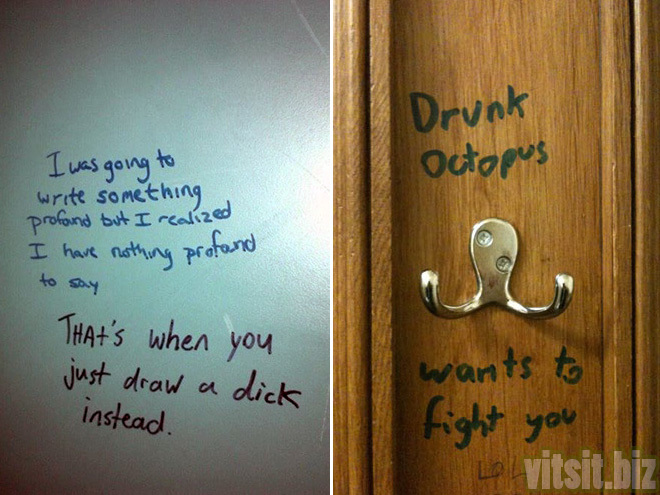 I was going to
write something
profound but I realized
I have nothing profound
to say
THAt's when you
just draw a dick
instead.
Drunk
Octopus
wants to
fight you
LOL
vitsit.biz